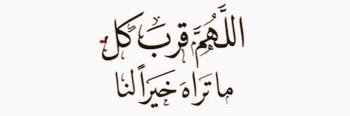 اللَّهُمَّ قربَ كل
ما تراهَ خيَراً لنا